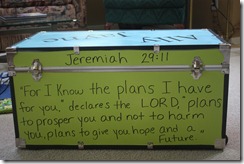 Jeremiah 29:11
"For I Know the plans I have
for you," declares the LORD," plans
to prosper you and not to harm
you, plans to give you hope and a
Future."